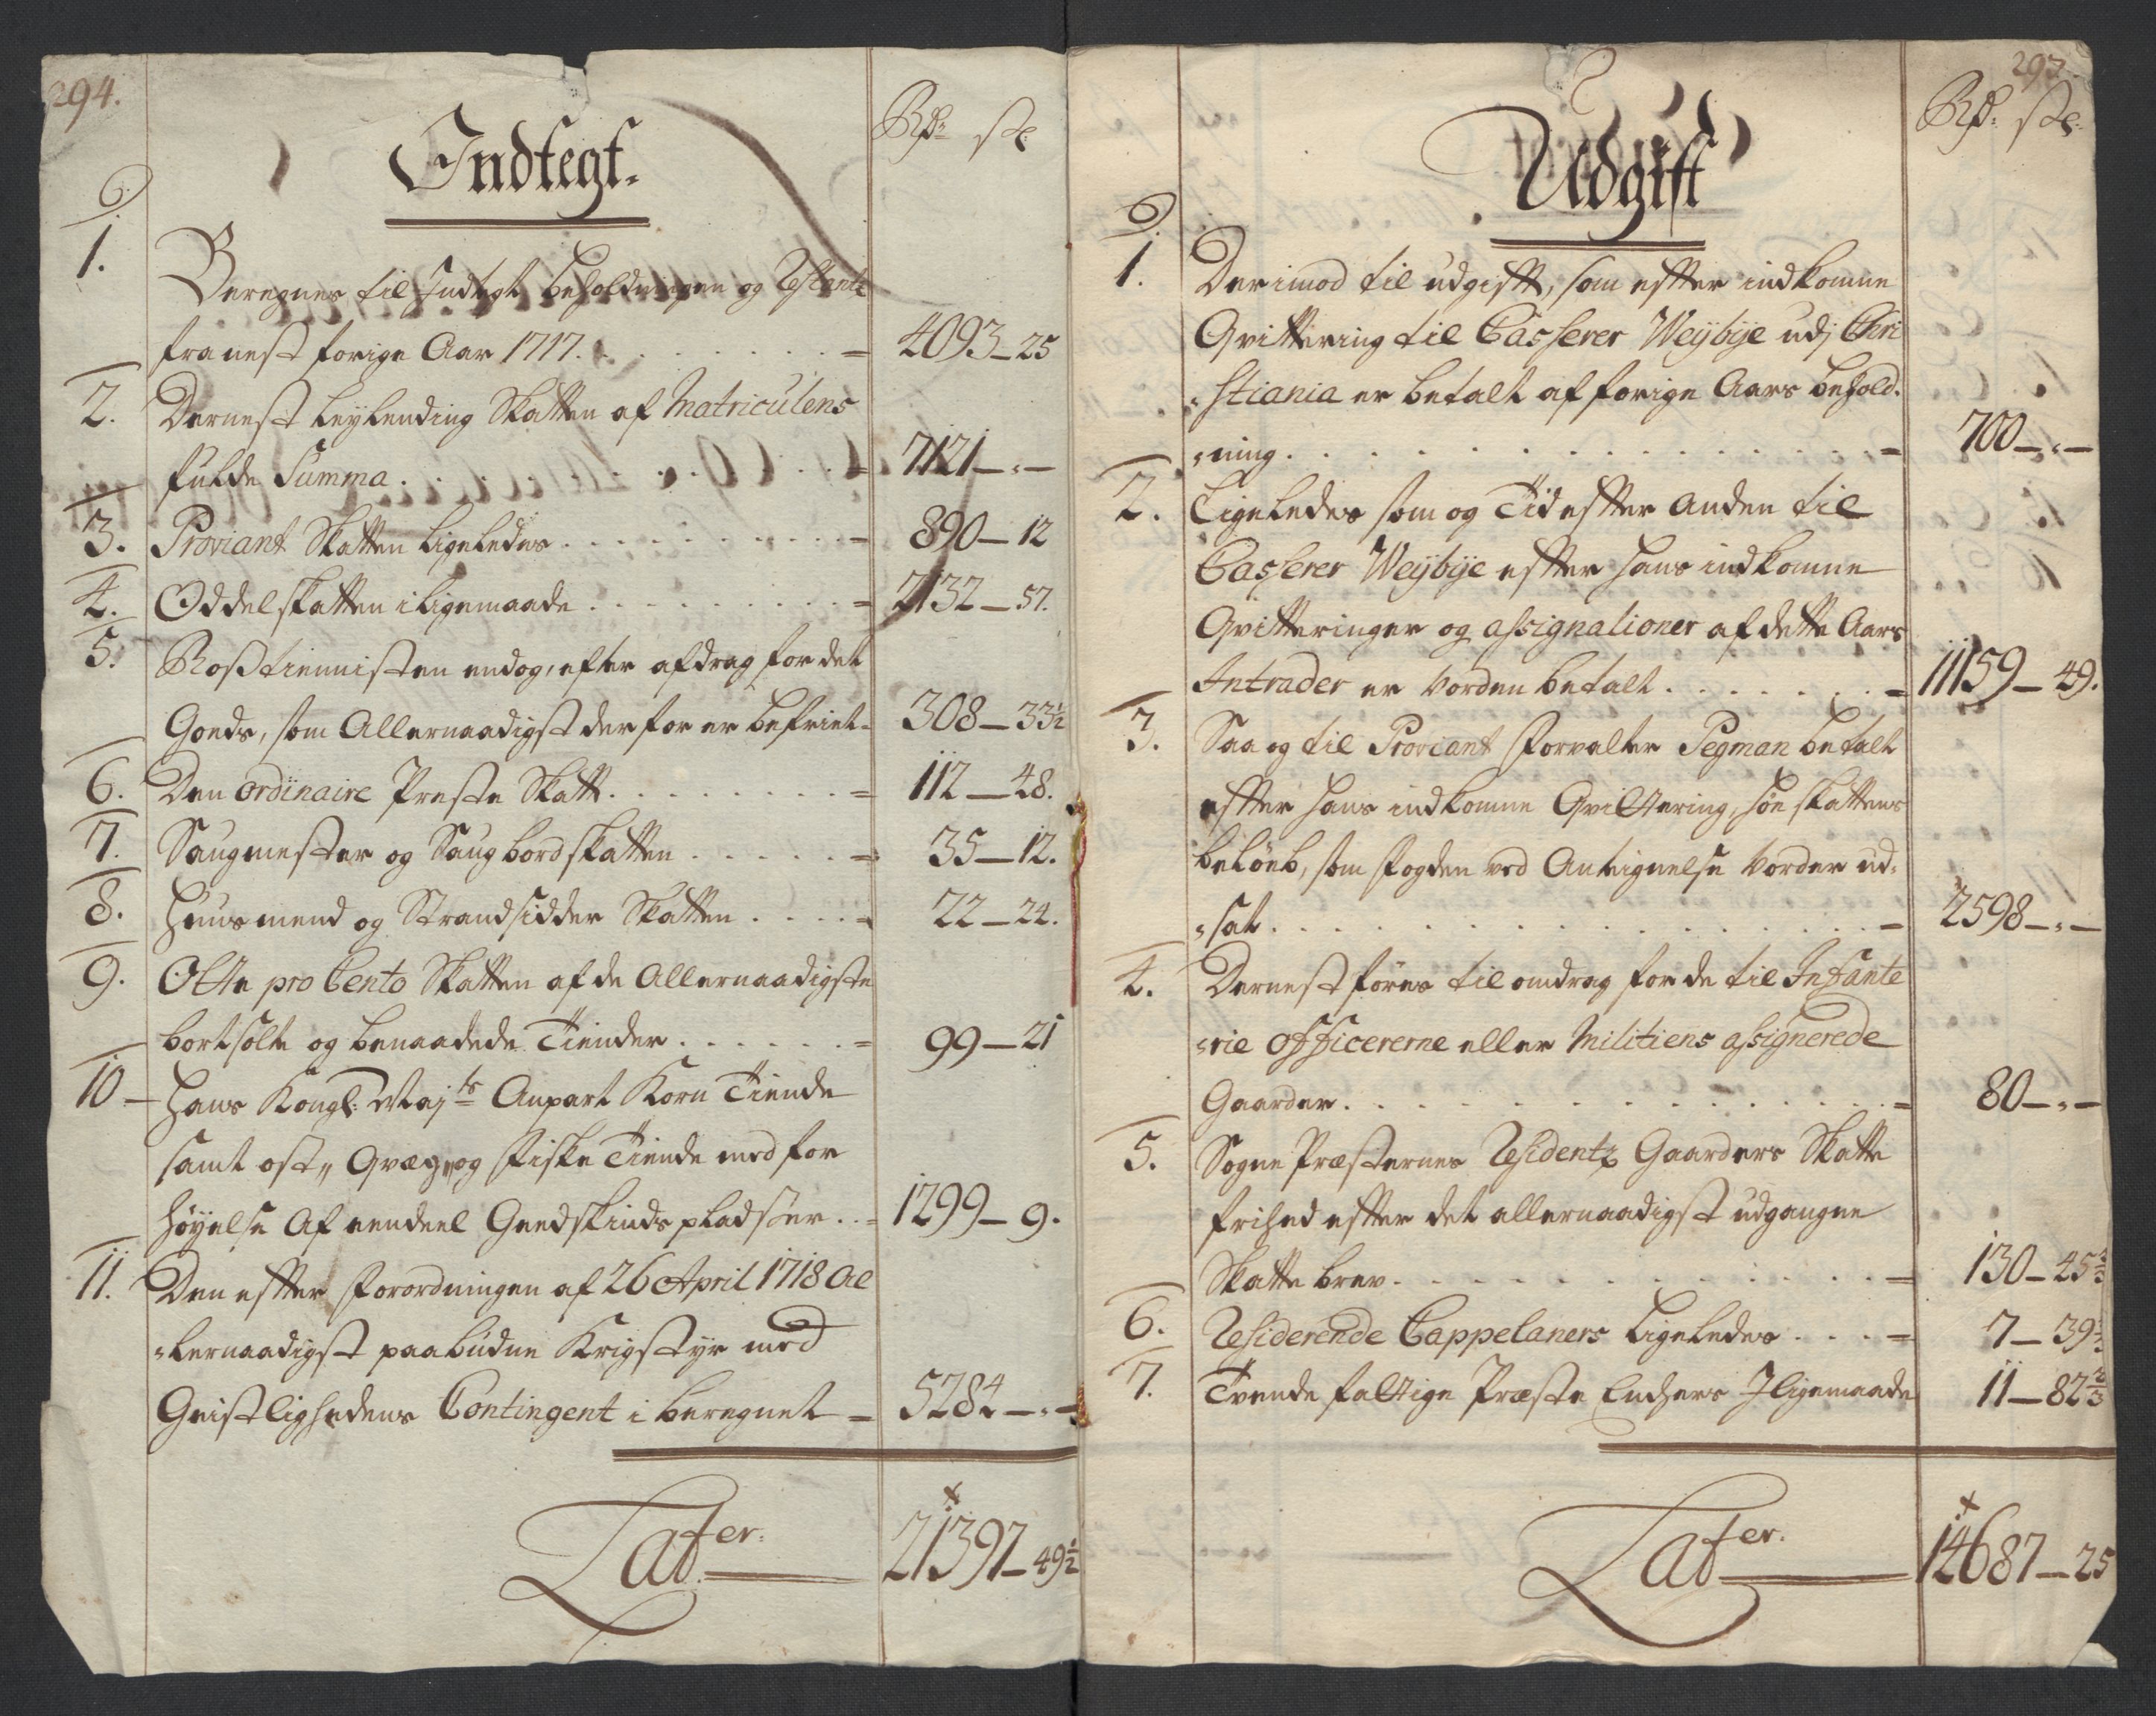 294.
Indtegt.
Rdr: sk
1. Beregnes til Indtegt beholdningen og Restantz
fra nest forige Aar 1717. = 4093–25
2. Dernest Leylending Skatten af Matriculens
fulde Summa. = 7121–"–
3. Proviant Skatten ligeledes. – 890–12
4. Oddelskatten i ligemaade. = 2132–57.
5. Rostiennisten endog, efter afdrag for det
Goeds, som Allernaadigst derfor er befriet– 308–33½
6. Den ordinaire Preste Skatt. = 112–48.
7. Saugmester og Saugbordskatten. = 35–12.
8. Huusmend og Strandsidder Skatten. 22–24.
9. Otte pro Cento Skatten af de Allernaadigste
bortsolte og benaadede Tiender. = 99–21
10– Hans Kongl: Maj:ts Anpart Korn Tiende
samt ost", Qvæg" og fiske Tiende med for
høyelse Af eendeel Geedskinds pladsser.. = 1299–9.
11. Den effter forordningen af 26 April 1718 Al
"lernaadigst paabudne Krigstyr med
Geistlighedens Contingent i beregnet = 5284–"–
Later. 21397–49½
297.
Udgift
Rdr: sk:
1. Derimod til udgifft, som effter indkomne
Qvittering til Casserer Weybye udj Chri
"stiania er betalt af forige Aars behold:
"ning. = 700–"–
2. Ligeledes som og Tid effter anden til
Casserer Weybye effter hans indkomne
Qvitteringer og assignationer af dette Aars
Intrader er vorden betalt. = 11159–49.
3. Saa og til Proviant forvalter Pegman betalt
effter hans indkomne Qvittering, høe skattens
beløeb, som fogden ved Antegnelse vorder ud:
"sat. – 2598–"–
4. Dernest føres til omdrag for de til Infante
"rie officererne eller Militiens assignerede
Gaarder. = 80–"–
5. Sogne Præsternes Residentz Gaarders Skatte
frihed effter det allernaadigst udgangne
Skatte brev. = 130–45⅔
6. Residerende Cappelaners ligeledes. = 7–39⅓
7. Tvende fattige Præste Enchers I ligemaade 11–82⅔
Later. 14687–25